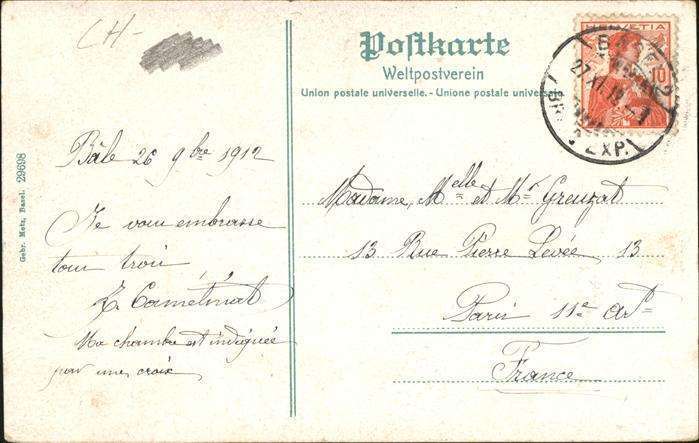 CH-
Postkarte
Weltpostverein
Union postale universelle. - Unione postale universale
HELVETIA
10
BASEL 2
27.XI.12
BRIEF EXP.
Gebr. Metz, Basel. 29698
Bâle 26 9bre 1912
Je vous embrasse
tous trois
Ma chambre est indiquée
par une croix
Madame, Melle et Mr Greuzat
13 Rue Pierre Levée 13
Paris 11e Art
France